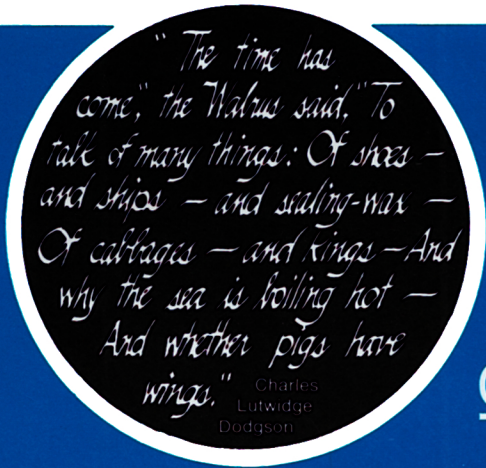 "The time has
come," the Walrus said, "To
talk of many things: Of shoes —
and ships — and sealing-wax —
Of cabbages — and kings — And
why the sea is boiling hot —
And whether pigs have
wings."
Charles
Lutwidge
Dodgson